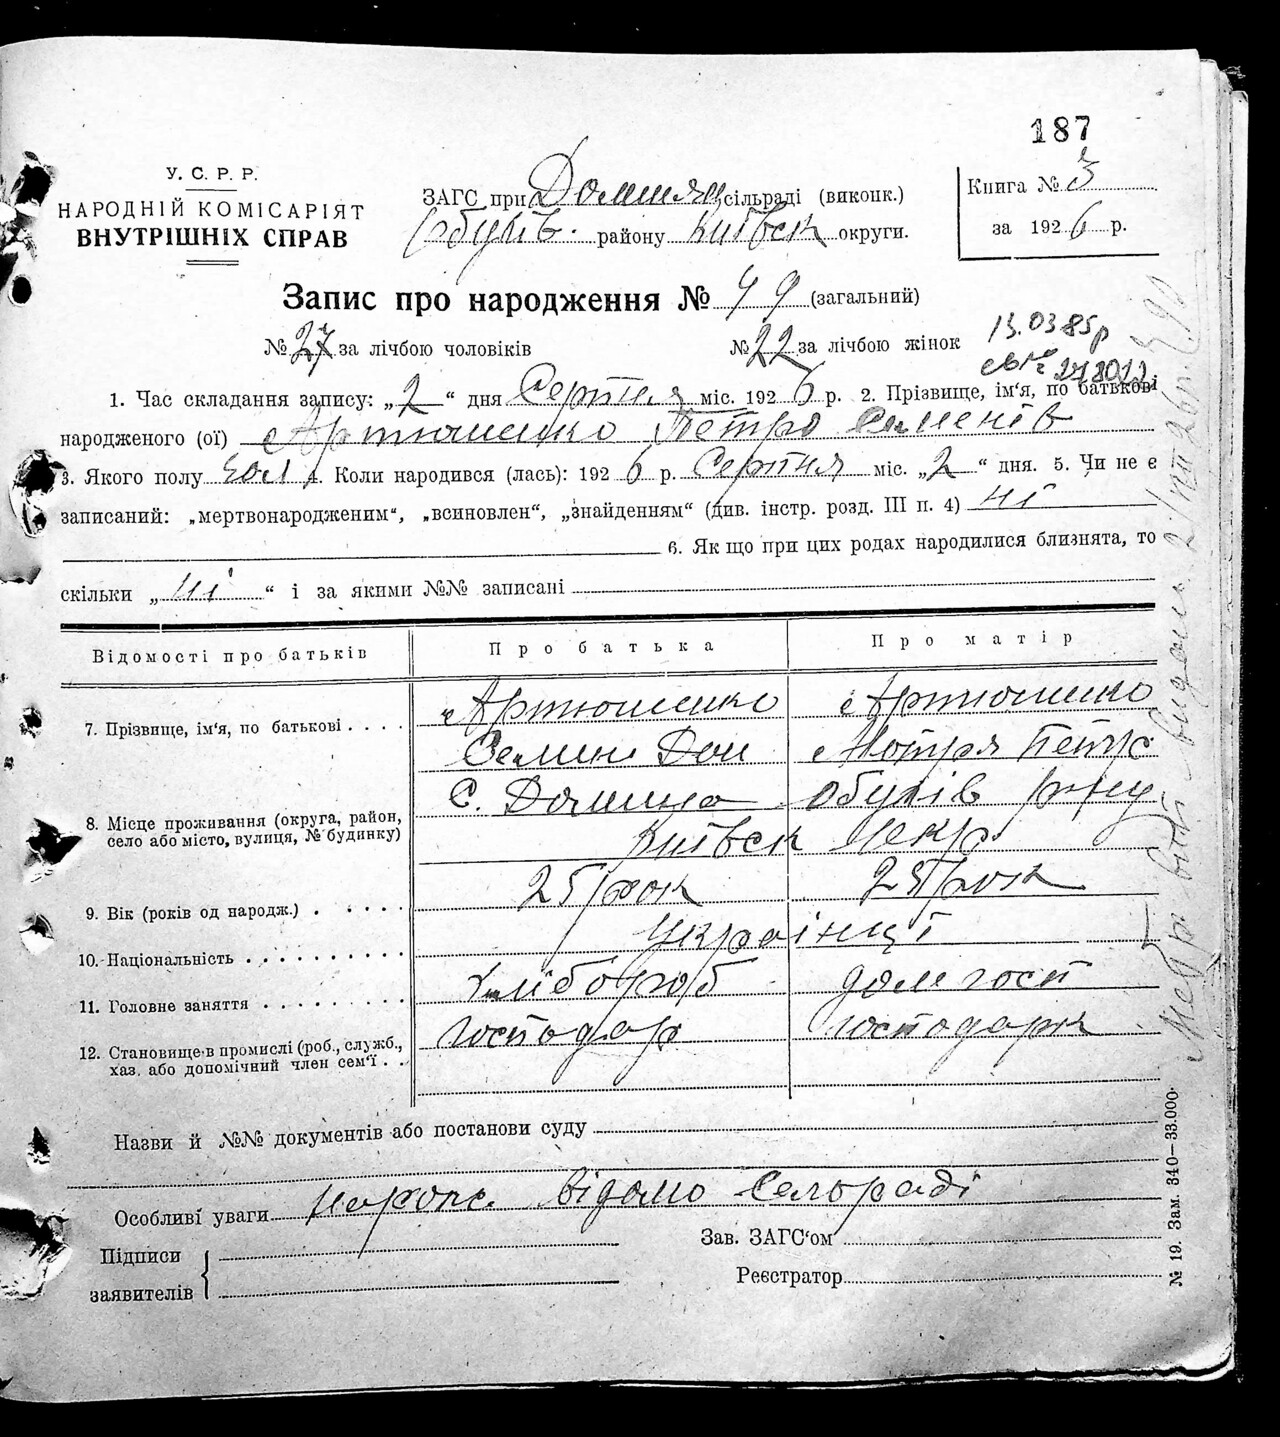 187
У. С. Р. Р.
НАРОДНІЙ КОМІСАРІЯТ
ВНУТРІШНІХ СПРАВ
ЗАГС при сільраді (виконк.)
Обухів. району Київськ округи.
Книга № 3
за 1926 р.
Запис про народження № 49 (загальний)
№ 27 за лічбою чоловіків № 22 за лічбою жінок
13.03.85р
278012
1. Час складання запису: „2“ дня Серпня міс. 1926 р. 2. Прізвище, ім'я, по батькові
народженого (ої) Артюшенко Петро Семенів
3. Якого полу чол 4. Коли народився (лась): 1926 р. Серпня міс. „2“ дня. 5. Чи не є
записаний: „мертвонародженим“, „всиновлен“, „знайденням“ (див. інстр. розд. III п. 4) ні
6. Як що при цих родах народилися близнята, то
скільки „ні“ і за якими №№ записані
Відомості про батьків Про батька Про матір
7. Прізвище, ім'я, по батькові . . . . Артюшенко Артюшенко
Семен Дои Мотря Петрс
8. Місце проживання (округа, район, село або місто, вулиця, № будинку) С. Обухів р-ну
Київськ
9. Вік (років од народж.) . . . . . 25 рок 25 рок
10. Національність . . . . . . . . . . Українці
11. Головне заняття . . . . . . . . Хлібороб дом госп
12. Становище в промислі (роб., служб., хаз. або допомічний член сем'ї . . господар господарк
Назви й №№ документів або постанови суду
Особливі уваги відомо Сельраді
Підписи заявителів
Зав. ЗАГС'ом
Реєстратор
№ 19. Зам. 340—33.000.